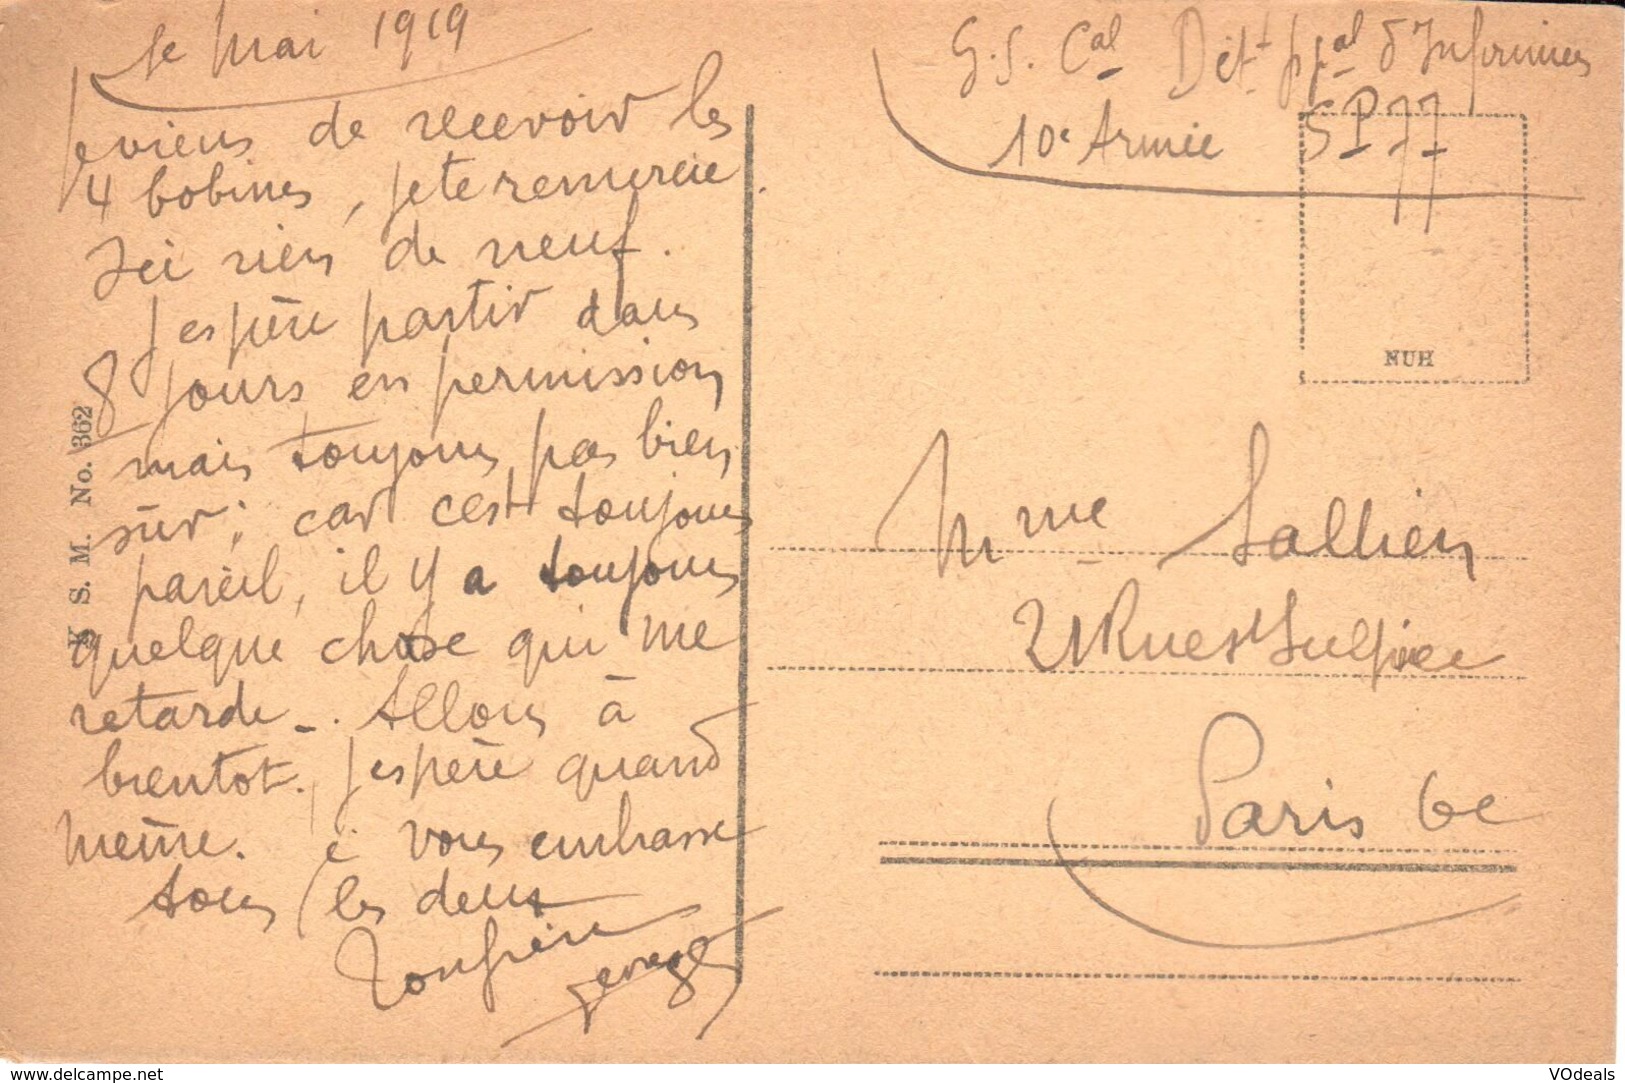 le Mai 1919
je viens de recevoir les
4 bobines, je te remercie.
Ici rien de neuf.
J'espère partir dans
8 jours en permission
mais toujours pas bien
sûr; car c'est toujours
pareil, il y a toujours
quelque chose qui me
retarde -. Allons à
bientot., j'espère quand
même. Je vous embrasse
tous les deux
Ton frère
Georges
K S. M. No. 362
G.S. Cal Dét.t ppal d'Infirmiers
10e Armée SP 77
NUH
Mme Sallien
21 Rue St Sulpice
Paris 6e
www.delcampe.net
VOdeals